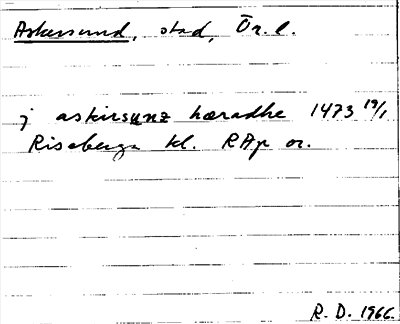 Askersund, stad, Ör. l.
j askirsunz hæradhe 1473 19/1
Riseberga kl. RAp or.
R. D. 1966.